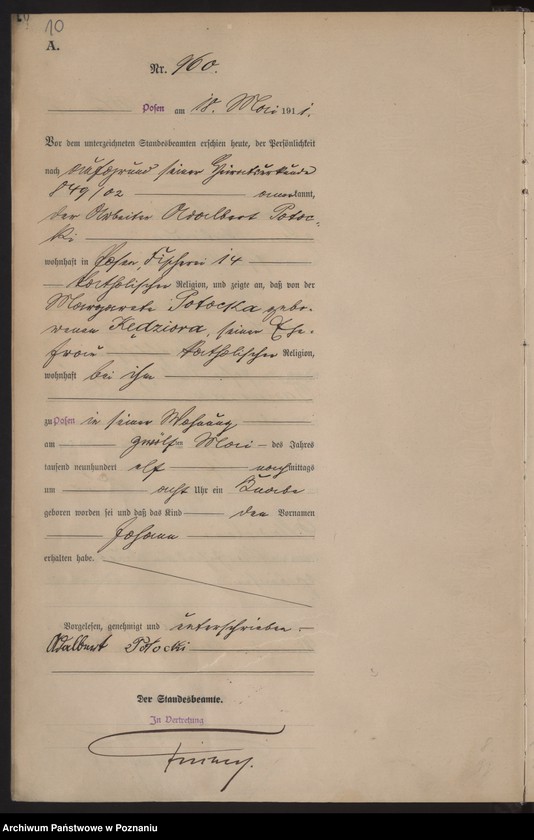 10
A.
Nr. 960.
Posen am 18. Mai 1911.
Vor dem unterzeichneten Standesbeamten erschien heute, der Persönlichkeit
nach aufgrund seiner Heiratsurkunde
849/02 anerkannt,
der Arbeiter Adalbert Potoc-
ki
wohnhaft in Posen, Fischerei 14
katholischer Religion, und zeigte an, daß von der
Margarete Potocka gebo-
renen Kędziora, seiner Ehe-
frau katholischer Religion,
wohnhaft bei ihm
zu Posen in seiner Wohnung
am zwölften Mai des Jahres
tausend neunhundert elf nachmittags
um acht Uhr ein Knabe
geboren worden sei und daß das Kind den Vornamen
Johann
erhalten habe.
Vorgelesen, genehmigt und unterschrieben
Adalbert Potocki
Der Standesbeamte.
In Vertretung
Archiwum Państwowe w Poznaniu